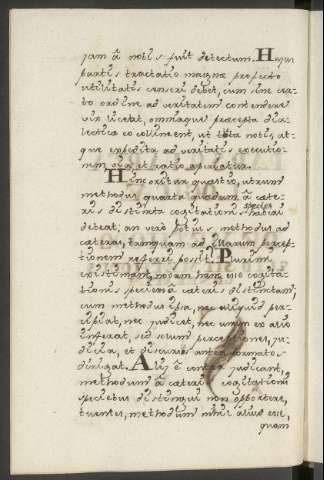 jam à nobis fuit detectum. Hujus
partis tractatio magnæ profecto
utilitatis censeri debet, cum sine cer-
to ordine ad veritatem contendere
non liceat, omniaque præcepta dia-
lectica eo collineent, ut tota nobis, at-
que expedita ad veritatis
via et ratio aperiatur.
Hinc oritur quæstio, utrum
methodus quarta quædam à cæte-
ris distincta cogitationis species haberi
debeat, an vero potius methodus ad
cæteras, tanquam ad illarum percep-
tionem referri possit. Plurimi
existimant, nodam hanc esse cogita-
tionis speciem à cæteris distinctam,
cum methodus ipsa, nec aliquid per-
cipiat, nec judicet, nec unum ex alio
inferat, sed solum perceptiones, ju-
dicia, et discursus antea formatos
dirigat. Alii è contra judicant,
methodum à cæteris cogitationis
speciebus distingui non oportere,
tuentes, methodum nihil aliud esse,
quam